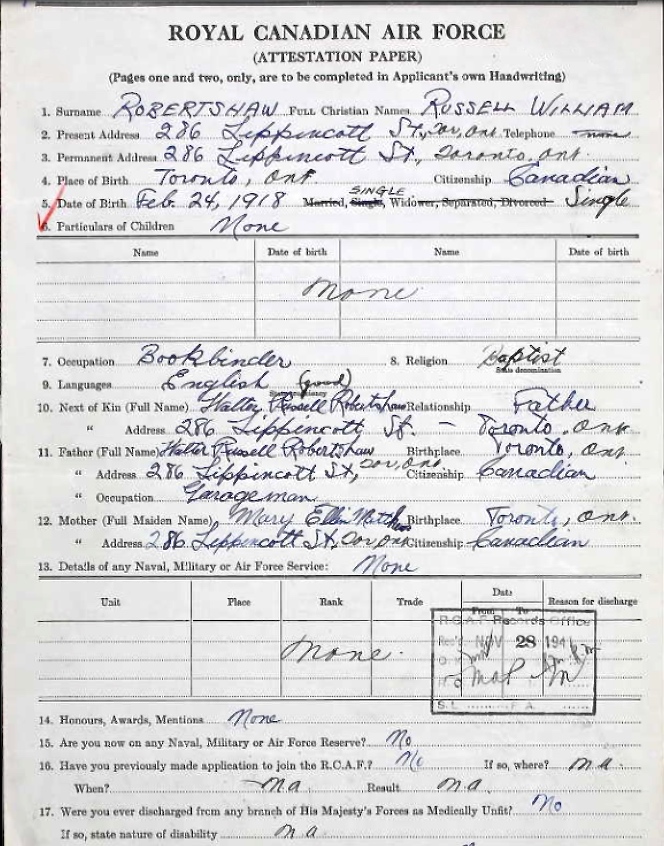 ROYAL CANADIAN AIR FORCE
(ATTESTATION PAPER)
(Pages one and two, only, are to be completed in Applicant's own Handwriting)
1. Surname ROBERTSHAW Full Christian Names RUSSELL WILLIAM
2. Present Address 286 Lippincott St., Tor, Ont Telephone none
3. Permanent Address 286 Lippincott St., Toronto, Ont
4. Place of Birth Toronto, Ont Citizenship Canadian
SINGLE
5. Date of Birth Feb. 24, 1918 Married, Single, Widower, Separated, Divorced Single
6. Particulars of Children None
Name Date of birth Name Date of birth
None
7. Occupation Bookbinder 8. Religion Baptist
State denomination
9. Languages English (good)
10. Next of Kin (Full Name) Walter Russell Robertshaw Relationship Father
" Address 286 Lippincott St. - Toronto, Ont
11. Father (Full Name) Walter Russell Robertshaw Birthplace Toronto, Ont
" Address 286 Lippincott St, Tor, Ont. Citizenship Canadian
" Occupation Garageman
12. Mother (Full Maiden Name) Mary Ellen Birthplace Toronto, Ont.
" Address 286 Lippincott St, Tor, Ont Citizenship Canadian
13. Details of any Naval, Military or Air Force Service: None
Unit Place Rank Trade Date Reason for discharge
From To
R.C.A.F. Records Office
Rec'd NOV 28 194
None.
14. Honours, Awards, Mentions None
15. Are you now on any Naval, Military or Air Force Reserve? No
16. Have you previously made application to join the R.C.A.F.? No If so, where? n.a.
When? n a Result n a.
17. Were you ever discharged from any branch of His Majesty's Forces as Medically Unfit? No
If so, state nature of disability n a